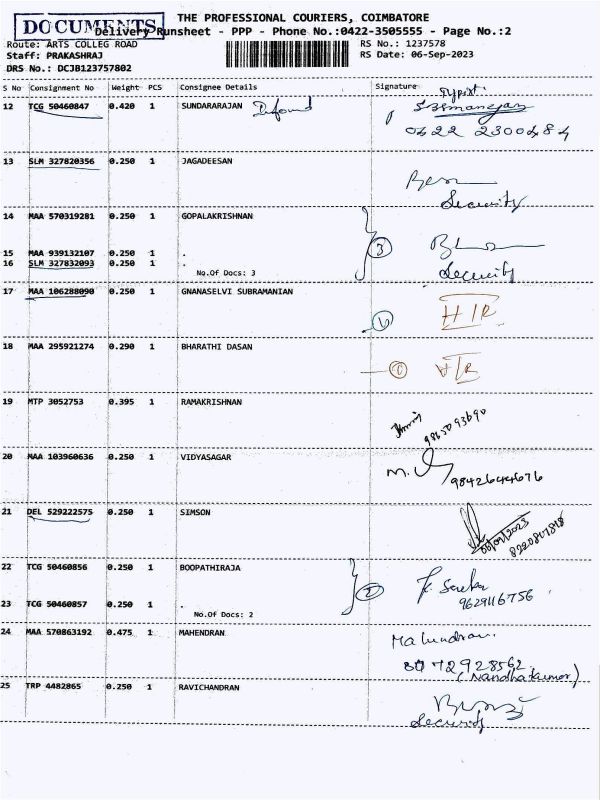 DOCUMENTS
THE PROFESSIONAL COURIERS, COIMBATORE
Delivery Runsheet - PPP - Phone No.:0422-3505555 - Page No.:2
Route: ARTS COLLEG ROAD RS No.: 1237578
Staff: PRAKASHRAJ RS Date: 06-Sep-2023
DRS No.: DCJB123757802
S No Consignment No Weight PCS Consignee Details Signature
12 TCG 50460847 0.420 1 SUNDARARAJAN
0422 2300484
13 SLM 327820356 0.250 1 JAGADEESAN
Security
14 MAA 570319281 0.250 1 GOPALAKRISHNAN
15 MAA 939132107 0.250 1 . 3
16 SLM 327832093 0.250 1 .
No.Of Docs: 3 Security
17 MAA 106288090 0.250 1 GNANASELVI SUBRAMANIAN
18 MAA 295921274 0.290 1 BHARATHI DASAN
19 MTP 3052753 0.395 1 RAMAKRISHNAN
9865093690
20 MAA 103960636 0.250 1 VIDYASAGAR
9842644676
21 DEL 529222575 0.250 1 SIMSON
06/09/2023
22 TCG 50460856 0.250 1 BOOPATHIRAJA
2
9629116756
23 TCG 50460857 0.250 1 .
No.Of Docs: 2
24 MAA 570863192 0.475 1 MAHENDRAN Mahendran.
(Nandhakumar)
25 TRP 4482865 0.250 1 RAVICHANDRAN
Security